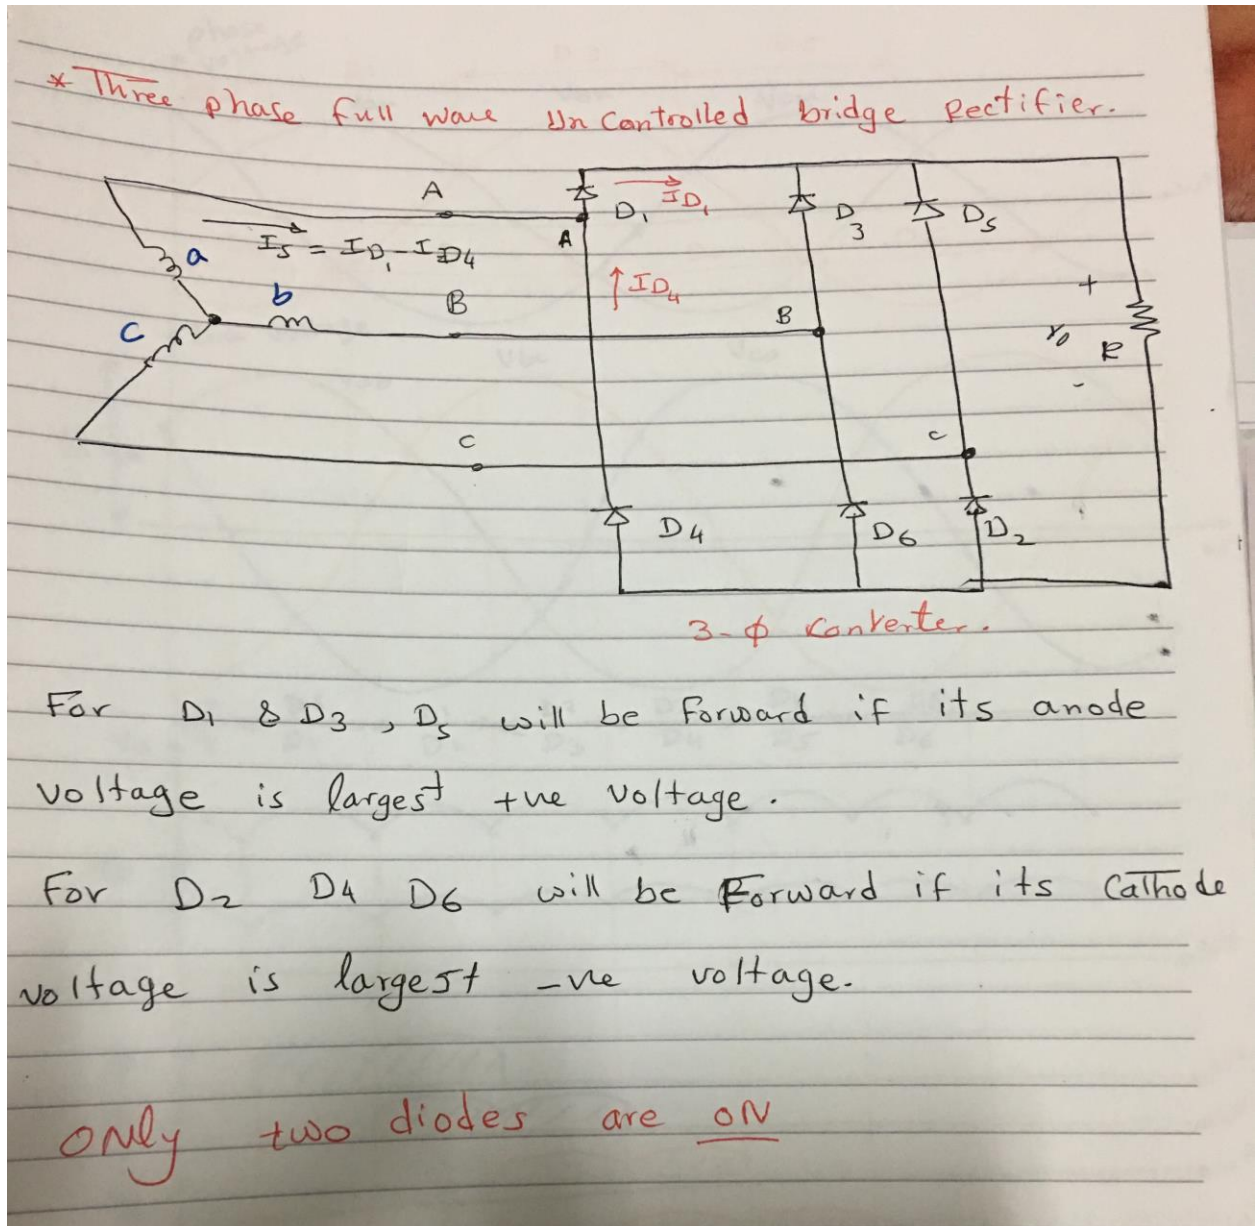 * Three phase full wave Un Controlled bridge Rectifier.
A
D1
ID1
D3
D5
A
a
Is = ID1 - ID4
ID4
b
B
B
+
c
vo
R
-
C
C
D4
D6
D2
3-ϕ Converter.
For D1 & D3 , D5 will be Forward if its anode
voltage is largest +ve voltage .
For D2 D4 D6 will be Forward if its Cathode
voltage is largest -ve voltage.
Only two diodes are ON